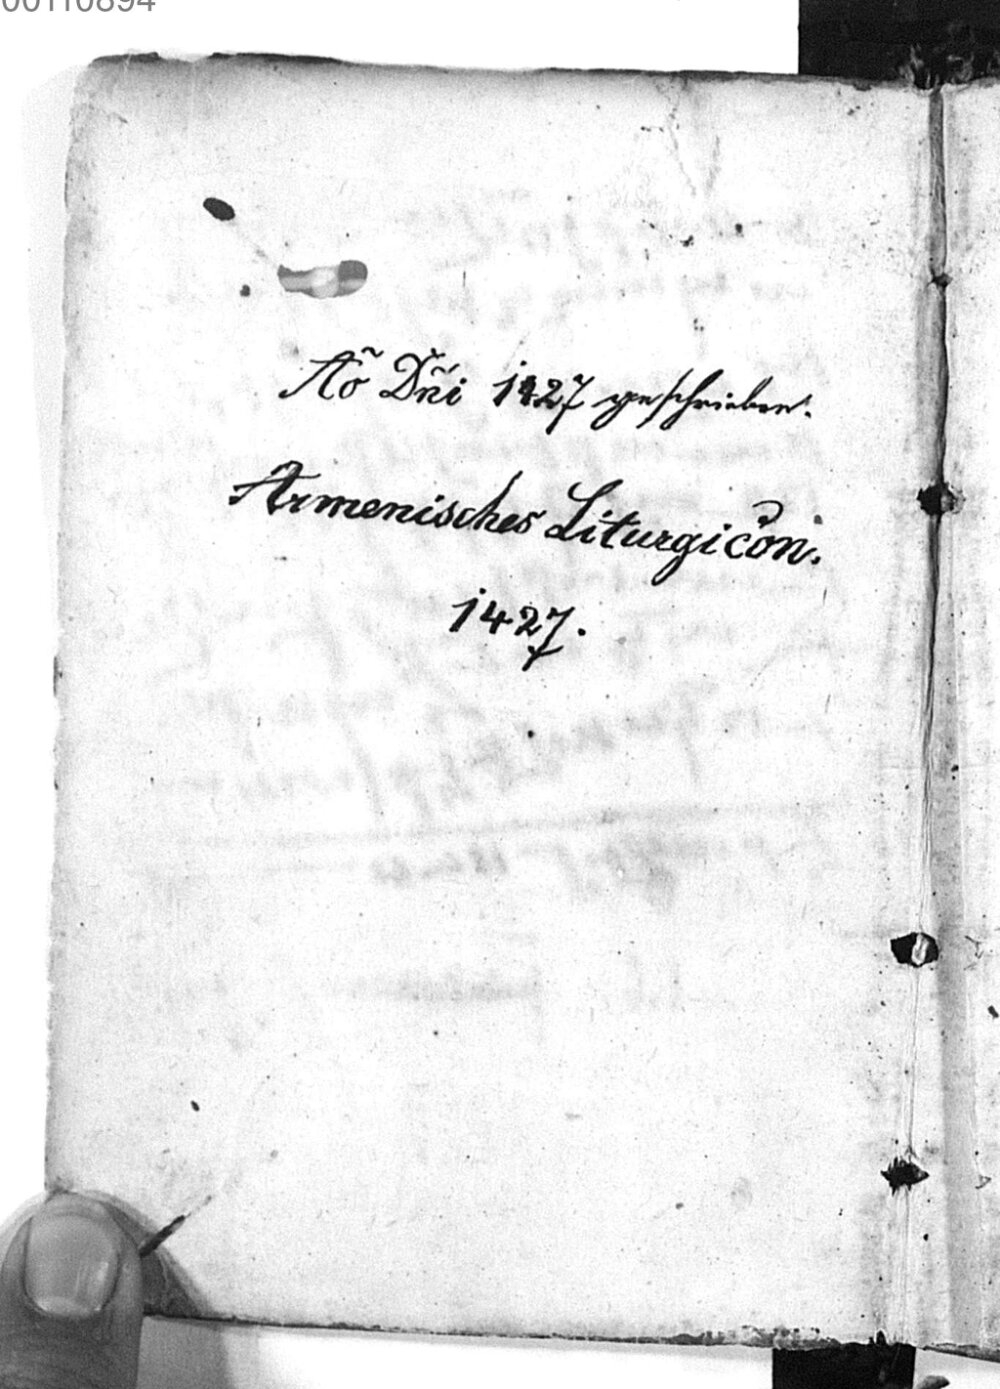 00110894
Aõ Dñi 1427 geschrieben.
Armenisches Liturgicon.
1427.